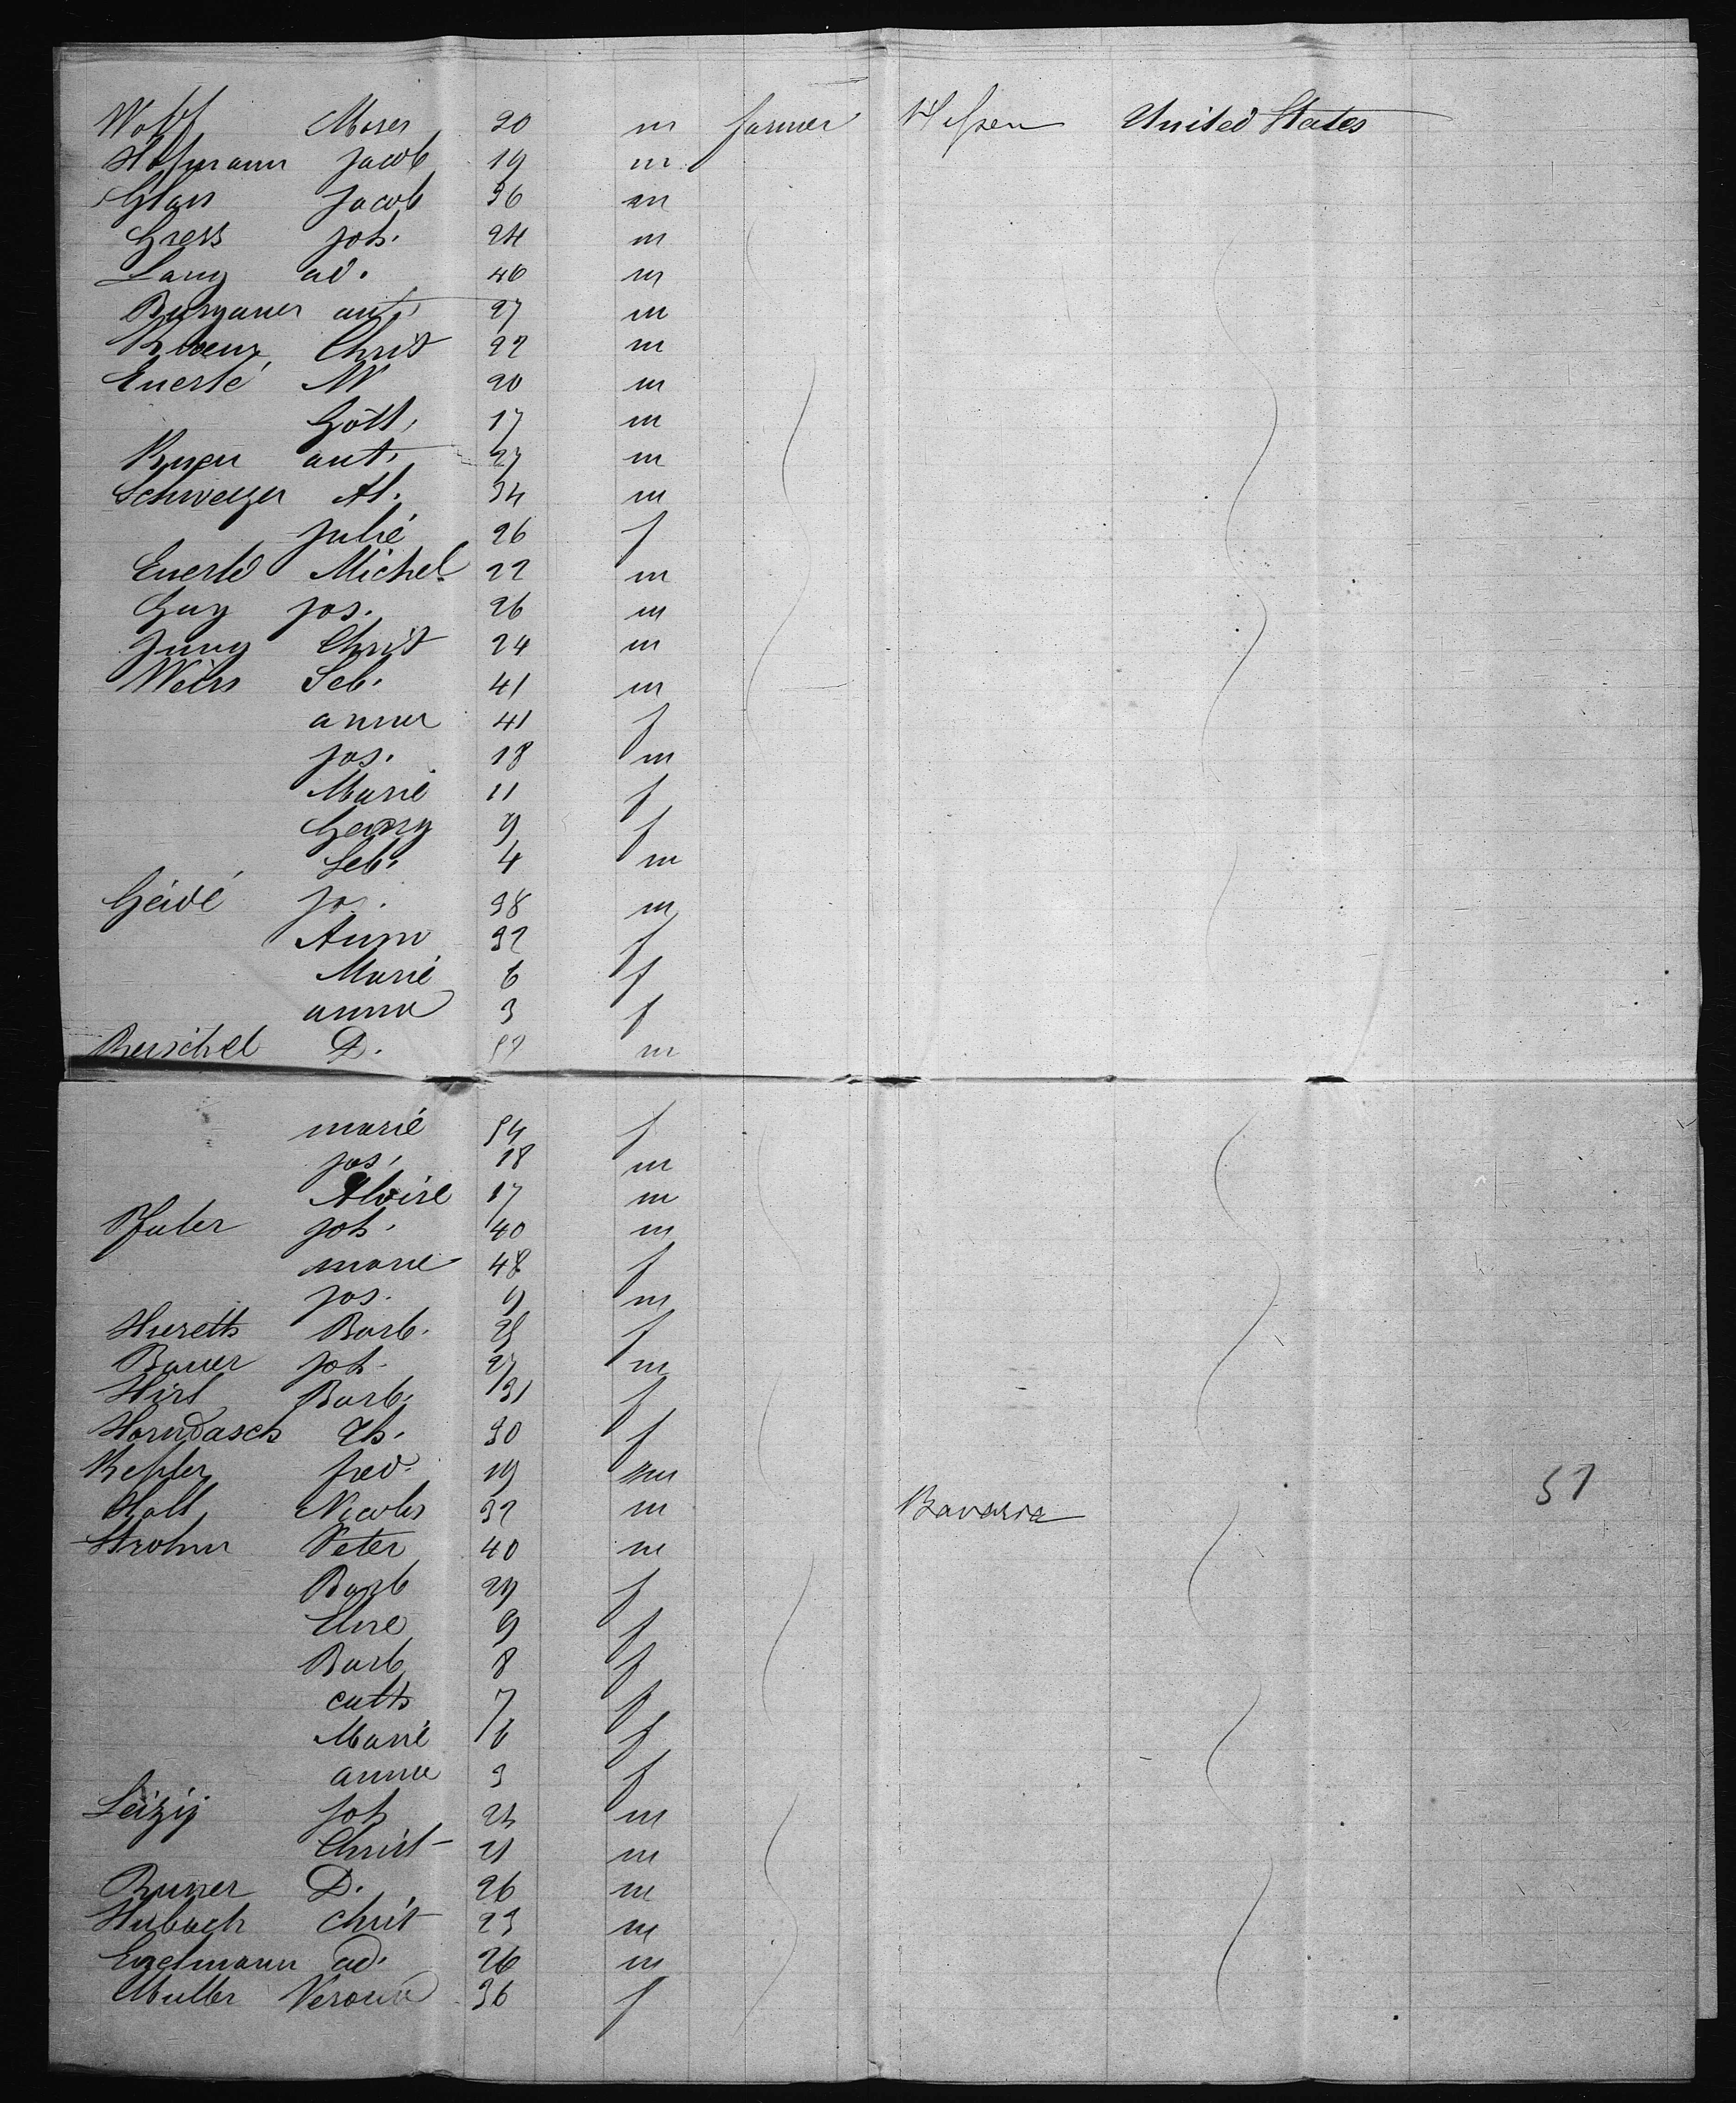 Wolf Moses 20 m farmer Hessen United States
Hofmann Jacob 19 m
Glass Jacob 36 m
Gress Joh. 24 m
Lang ad. 46 m
Burganer ant. 27 m
Christ 22 m
Euerlé W 20 m
Gött. 17 m
ant. 27 m
Schweizer Al. 34 m
Julié 26 f
Euerlé Michel 22 m
Guy Jos. 26 m
Jung Christ 24 m
Weiss Seb. 41 m
anna 41 f
Jos. 18 m
Marié 11 f
Georg 9 f
Seb. 4 m
Geidé Jos. 38 m
Anna 32 f
Marié 6 f
anna 3 f
Berschel D. 52 m
marié 54 f
Jos. 18 m
Aloise 17 m
Joh. 40 m
marie 48 f
Jos. 9 m
Hureth Barb. 25 f
Bauer Joh. 27 m
Hirt Barb. 31 f
Horndasch Th. 30 f
Kessler fred. 19 m
Holl Nicolas 32 m Bavaria 51
Strohm Peter 40 m
Barb 29 f
Elise 9 f
Barb 8 f
cath 7 f
Marié 6 f
anna 3 f
Leizig Joh 24 m
Christ 21 m
D. 26 m
Hubach Christ 23 m
Engelmann ad. 26 m
Muller Verona 36 f